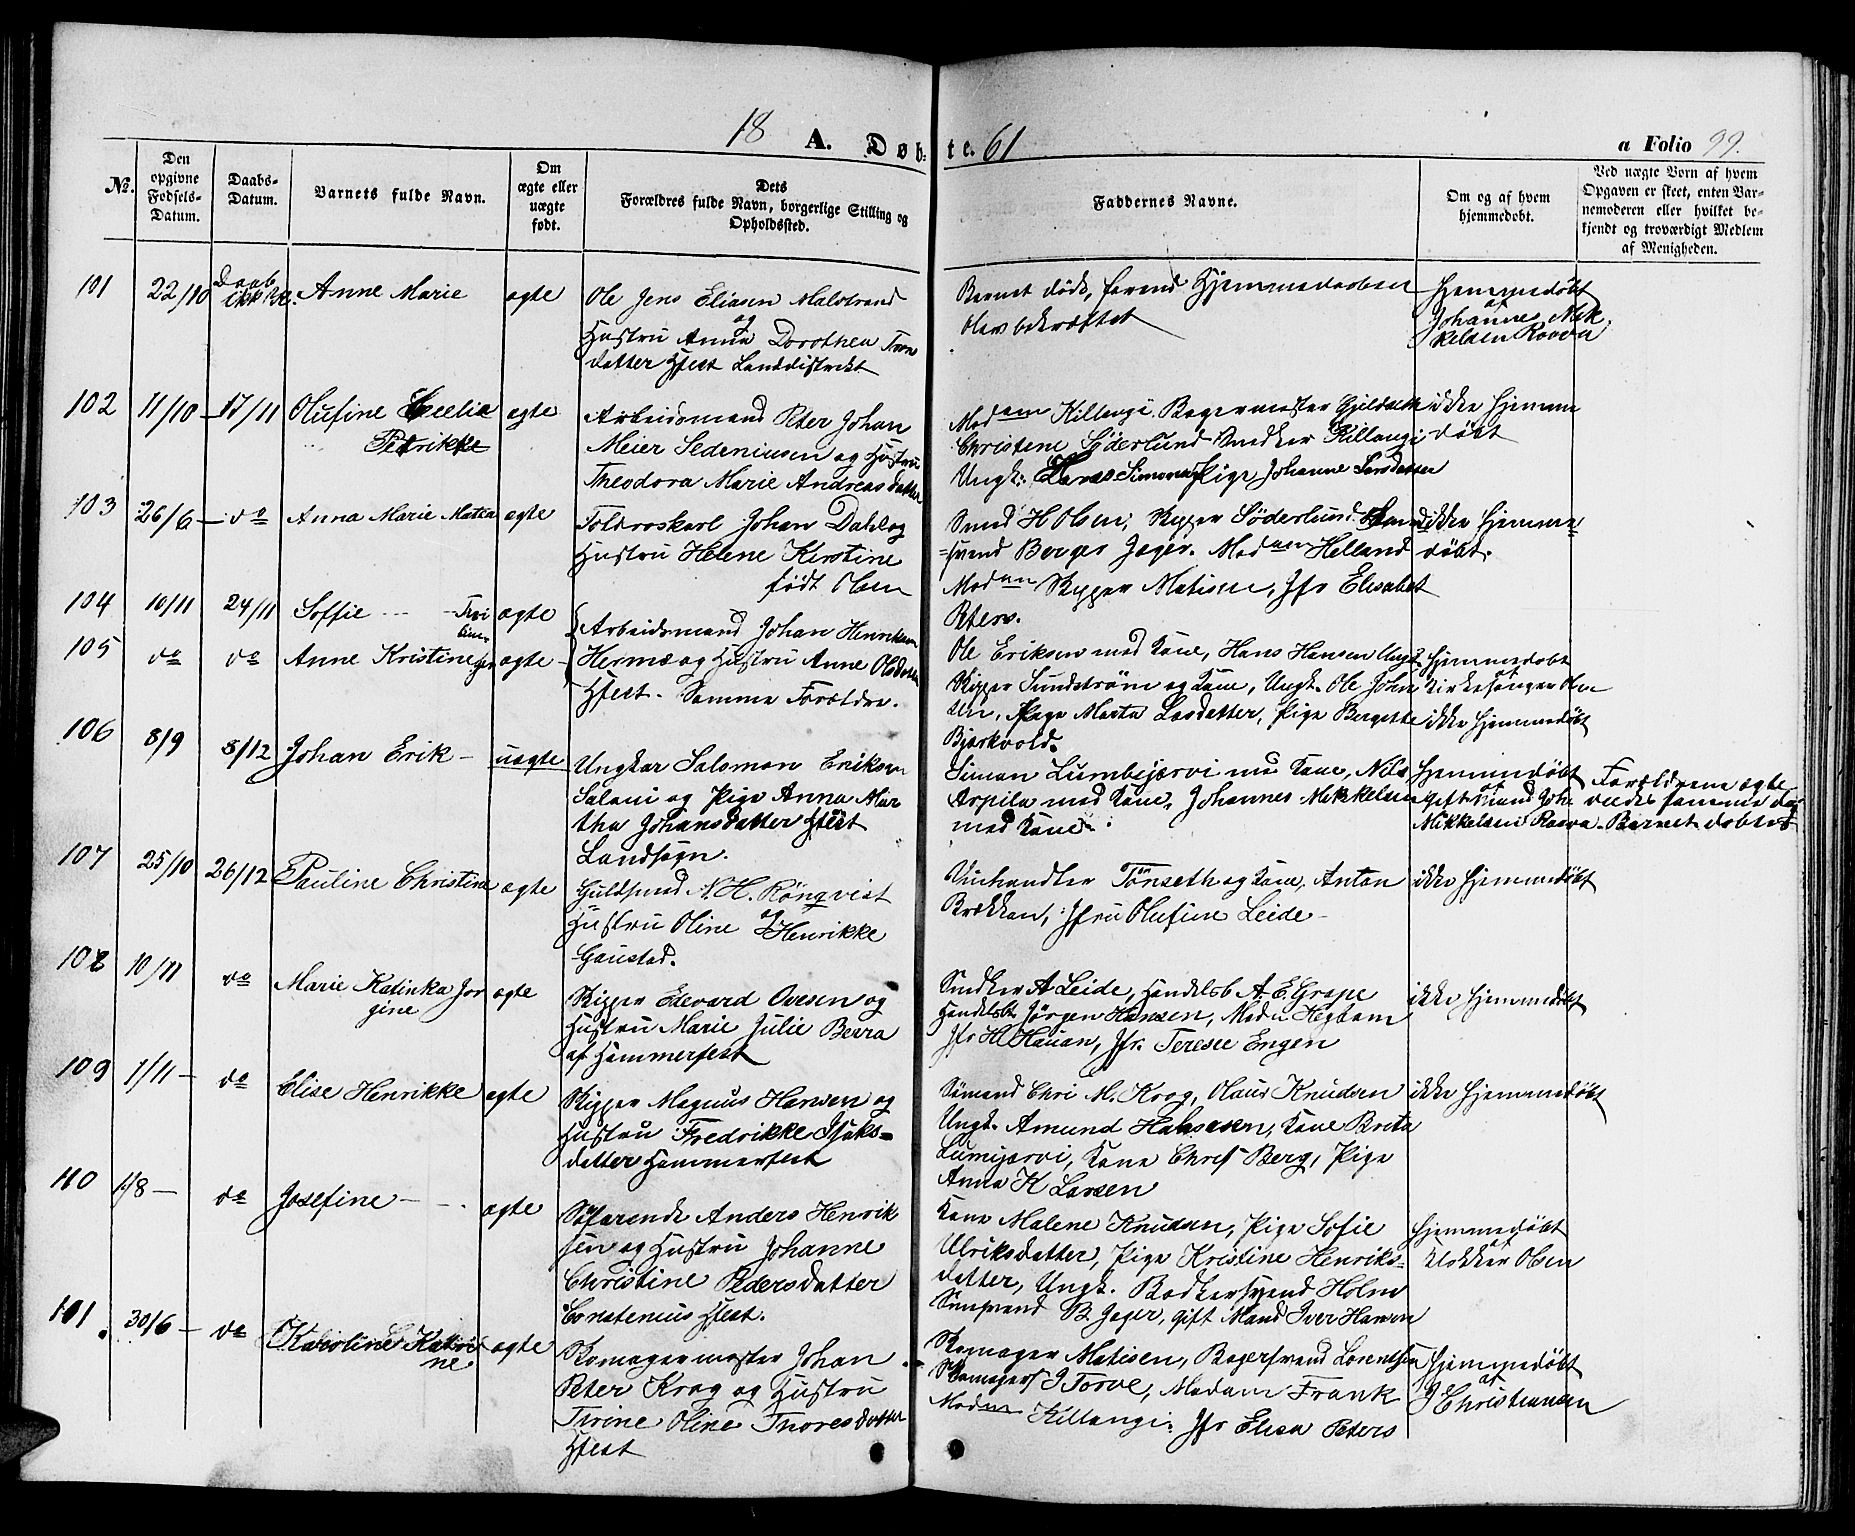 18 A. Døb- te. 61
a Folio 99.
No.
Den opgivne Fødsels-Datum.
Daabs-Datum.
Barnets fulde Navn.
Om ægte eller uægte født.
Dets Forældres fulde Navn, borgerlige Stilling og Opholdssted.
Faddernes Navne.
Om og af hvem hjemmedøbt.
Ved uægte Børn af hvem Opgaven er skeet, enten Barnemoderen eller hvilket bekjendt og troværdigt Medlem af Menigheden.
101 22/10 Daab ikke Anne Marie ægte
Ole Jens Eliasen Malstrand
og
Hustru Anna Dorothea Tron
datter Hfest Landdistrikt
Barnet døde, førend Hjemmedaaben
blev bekræftet
Hjemmedøbt
af
Johannes Mik
kelsen Raava
102 11/10 17/11 Olufine Cecelie ægte
Petrikke
Arbeidsmand Peter Johan
Meier Sedeniusen og Hustru
Theodora Marie Andreasdatter
Madam Killangi. Bagermester Gjeldseth
Christene Søderlund Snedker Killangi
Ungk: Simonsen Pige Johanne Larsdatter
ikke hjemme
døbt
103 26/6 do Anna Marie Matea ægte
Toldroskarl Johan Dahl og
Hustru Helene Kirstine
født Olsen
Smed H Olsen, Skipper Søderlund.
svend Berger Jæger. Madam Helland
Madam Skipper Matisen, Jfr Elisabet
Peters.
ikke hjemme=
døbt.
104 10/11 24/11 Soffie Tvil ægte
105 do do Anne Kristine ger ægte
Arbeidsmand Johan Henriksen
Hermæ og Hustru Anne Olsdatter
Hfest. Samme Forældre.
Ole Eriksen med Kone, Hans Hansen Ungk.
Skipper Sundstrøm og Kone, Ungk. Ole John
sen, Pige Marta Larsdatter, Pige Bergette
Bjørkvold.
Hjemmedøbt
af
Kirkesanger Olsen
ikke hjemmedøbt
106 8/9 8/12 Johan Erik uægte
Ungkar Salomon Eriksen
Salmi og Pige Anna Mar
tha Johansdatter Hfest
Landsogn.
Simon Lumbijærvi med Kone, Nils
Arpila med Kone, Johannes Mikkelsen
med Kone
Hjemmedøbt
af
gift Mand Joh.
Mikkelsen Raava.
Forældrene ægte
viedes samme Dag
Barnet døbtes
107 25/10 26/12 Pauline Christine ægte
Guldsmed N. H. Rønqvist
og
Hustru Oline Henrikke
Gaustad.
Uhrhandler Tønseth og Kone, Anton
Brækken, Jfru Olufine Leide
ikke hjemmedøbt
108 10/11 do Marie Katinka Jor ægte
gine
Skipper Edevard Ovesen og
Hustru Marie Julie Berra
af Hammerfest
Snedker A Leide, Handelsb A. E. Grape
Handelsb. Jørgen Hansen, Madm Hegbom
Jfr H Hauan, Jfr. Terese Engen
ikke hjemmedøbt
109 1/11 do Elise Henrikke ægte
Skipper Magnus Hansen og
Hustru Fredrikke Isaks-
datter Hammerfest
Sömand Chri M. Krog, Olaus Knudsen
Ungk. Amund Hansen, Kone Brita
Lumijærvi, Kone Chrest Berg, Pige
Anna K Larsen
ikke hjemmedøbt
110 1/8 do Josefine ægte
Søfarende Anders Henrik
sen og Hustru Johanne
Christine Pedersdatter
Constenius Hfest.
Kone Malene Knudsen, Pige Sofie
Ulriksdatter, Pige Kristine Henriks-
datter, Ungk. Bødkersvend Holm
B. Jæger, gift Mand Iver Hansen
Hjemmedøbt
af
Klokker Olsen
101. 30/6 do Karoline Katri ægte
ne
Skomagermester Johan
Peter Krog og Hustru
Tirine Oline Thoresdatter
Hfest
Skomager Matisen, Bagersvend Lorentsen
Skomagers J Torve, Madam Frank
Madam Killangi: Jfr Elisa Peters
Hjemmedøbt
af
J Christiansen